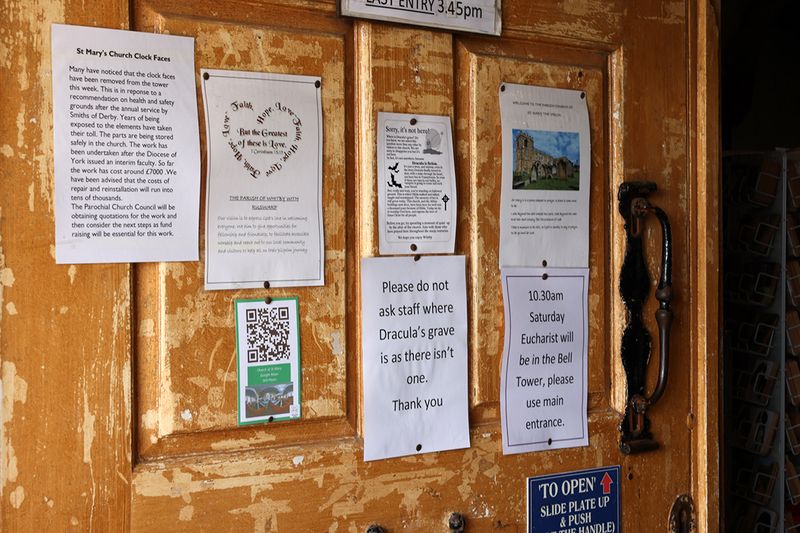 LAST ENTRY 3.45pm
St Mary's Church Clock Faces
Many have noticed that the clock faces
have been removed from the tower
this week. This is in reponse to a
recommendation on health and safety
grounds after the annual service by
Smiths of Derby. Years of being
exposed to the elements have taken
their toll. The parts are being stored
safely in the church. The work has
been undertaken after the Diocese of
York issued an interim faculty. So far
the work has cost around £7000. We
have been advised that the costs of
repair and reinstallation will run into
tens of thousand.
The Parochial Church Council will be
obtaining quotations for the work and
then consider the next steps as fund
raising will be essential for this work.
Faith, Hope, Love
'But the Greatest
of these is Love.'
1 Corinthians 13:13
THE PARISH OF WHITBY WITH
RUSWARP
Our vision is to express God's love in welcoming
everyone, we aim to give opportunities for
fellowship and friendship, to facilitate accessible
worship and reach out to our local community
and visitors to help all on their pilgrim journey
Church of St Mary
Sorry, it's not here!
Dracula's fiction.
We hope you enjoy Whitby
Please do not
ask staff where
Dracula's grave
is as there isn't
one.
Thank you
WELCOME TO THE PARISH CHURCH OF
ST MARY THE VIRGIN
10.30am
Saturday
Eucharist will
be in the Bell
Tower, please
use main
entrance.
'TO OPEN'
SLIDE PLATE UP
& PUSH
THE HANDLE)